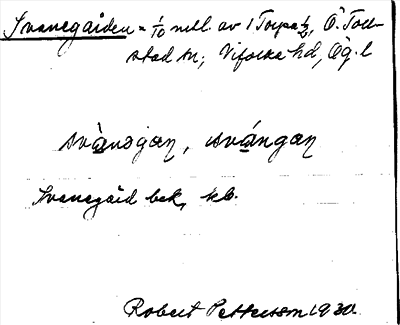 Svanegården = 1/10 mtl. av 1 Torpa 1/2, Ö. Toll-
stad sn; Vifolka hd, Ög. l
svànəgaṇ, svángaṇ
Svanegård bek, kb.
Robert Pettersson 1930.